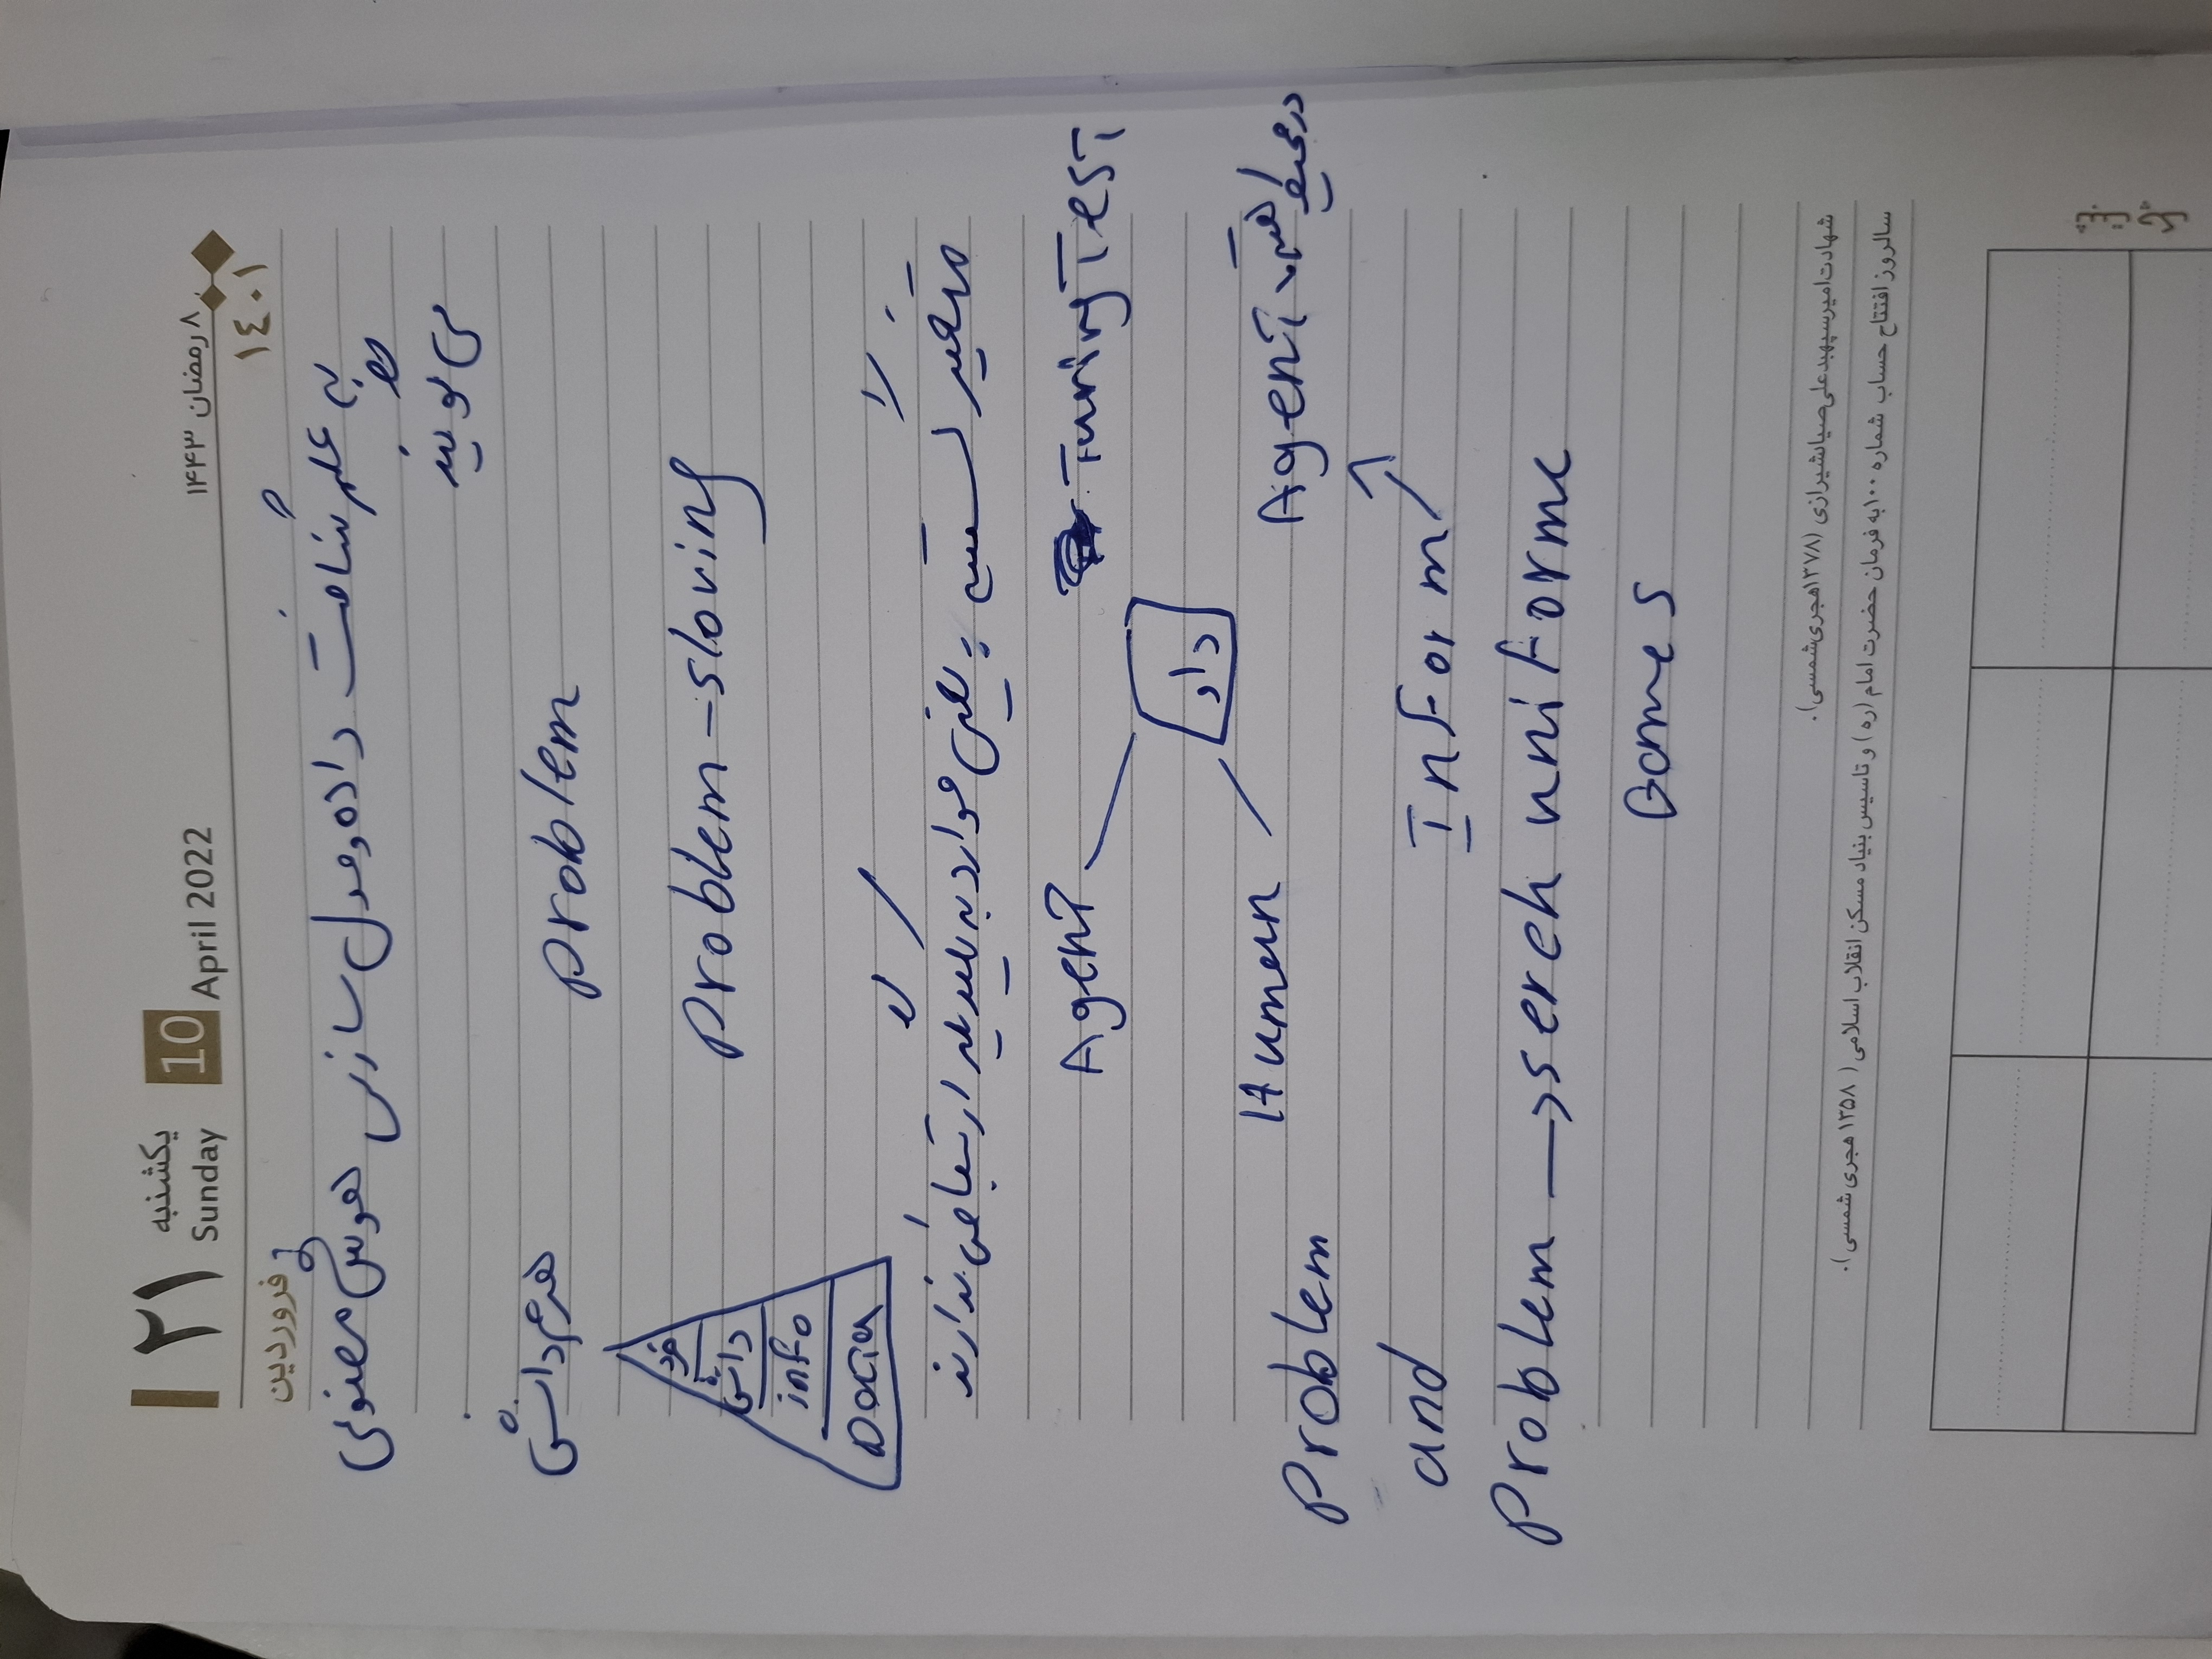 ۲۱ یکشنبه Sunday 10 April 2022 ۸ رمضان ۱۴۴۳
فروردین ۱۴۰۱
به علم شناخت داده و مدل سازی هوش مصنوعی
می گویند
هرم دانش
problem
problem-sloving
خرد
دانش
info
Data
متغیر گسسته : یعنی موارد به یکدیگر ارتباطی ندارند
Agent
Turing Test
داور
Human
Agent در محیط هست
Problem
and
Inform
Problem → serch uniforme
Games
شهادت امیر سپهبد علی صیاد شیرازی (۱۳۷۸ هجری شمسی).
سالروز افتتاح حساب شماره ۱۰۰ به فرمان حضرت امام (ره) و تاسیس بنیاد مسکن انقلاب اسلامی (۱۳۵۸ هجری شمسی).
ثبت چک